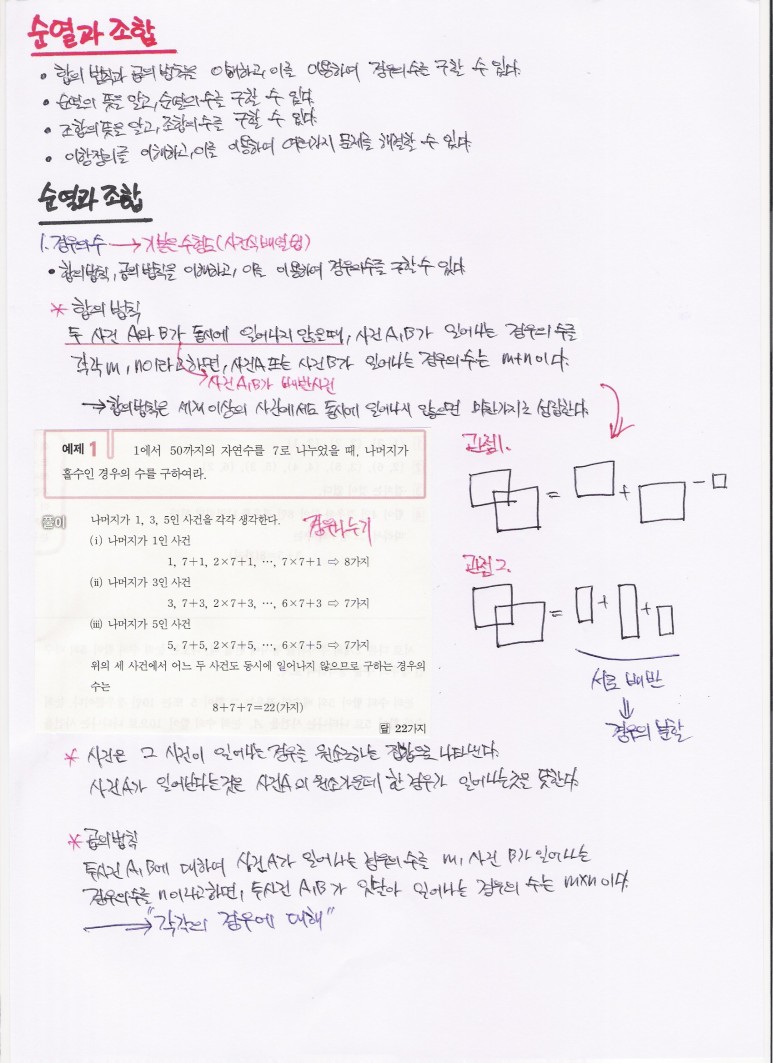 순열과 조합
• 합의 법칙과 곱의 법칙을 이해하고, 이를 이용하여 경우의 수를 구할 수 있다.
• 순열의 뜻을 알고, 순열의 수를 구할 수 있다.
• 조합의 뜻을 알고, 조합의 수를 구할 수 있다.
• 이항정리를 이해하고, 이를 이용하여 여러가지 문제를 해결할 수 있다.
순열과 조합
1. 경우의 수 → 기본은 수형도(사전식 배열법)
• 합의 법칙, 곱의 법칙을 이해하고, 이를 이용하여 경우의 수를 구할 수 있다.
* 합의 법칙
두 사건 A와 B가 동시에 일어나지 않을 때, 사건 A, B가 일어나는 경우의 수를
각각 m, n이라고 하면, 사건 A 또는 사건 B가 일어나는 경우의 수는 m+n이다.
→ 사건 A, B가 배반사건
→ 합의 법칙은 세개 이상의 사건에서도 동시에 일어나지 않으면 마찬가지로 성립한다.
예제 1 1에서 50까지의 자연수를 7로 나누었을 때, 나머지가
홀수인 경우의 수를 구하여라.
풀이 나머지가 1, 3, 5인 사건을 각각 생각한다.
경우나누기
(i) 나머지가 1인 사건
1, 7+1, 2×7+1, …, 7×7+1 ⇨ 8가지
(ii) 나머지가 3인 사건
3, 7+3, 2×7+3, …, 6×7+3 ⇨ 7가지
(iii) 나머지가 5인 사건
5, 7+5, 2×7+5, …, 6×7+5 ⇨ 7가지
위의 세 사건에서 어느 두 사건도 동시에 일어나지 않으므로 구하는 경우의
수는
8+7+7=22(가지)
답 22가지
관점1.
= + -
관점2.
= + +
서로 배반
⇓
경우의 분할
* 사건은 그 사건이 일어나는 경우를 원소로하는 집합으로 나타낸다.
사건A가 일어난다는것은 사건A의 원소가운데 한 경우가 일어나는것을 뜻한다.
* 곱의 법칙
두사건 A, B에 대하여 사건A가 일어나는 경우의 수를 m, 사건 B가 일어나는
경우의수를 n이라고하면, 두사건 A, B가 잇달아 일어나는 경우의 수는 m×n이다.
→ "각각의 경우에 대해"